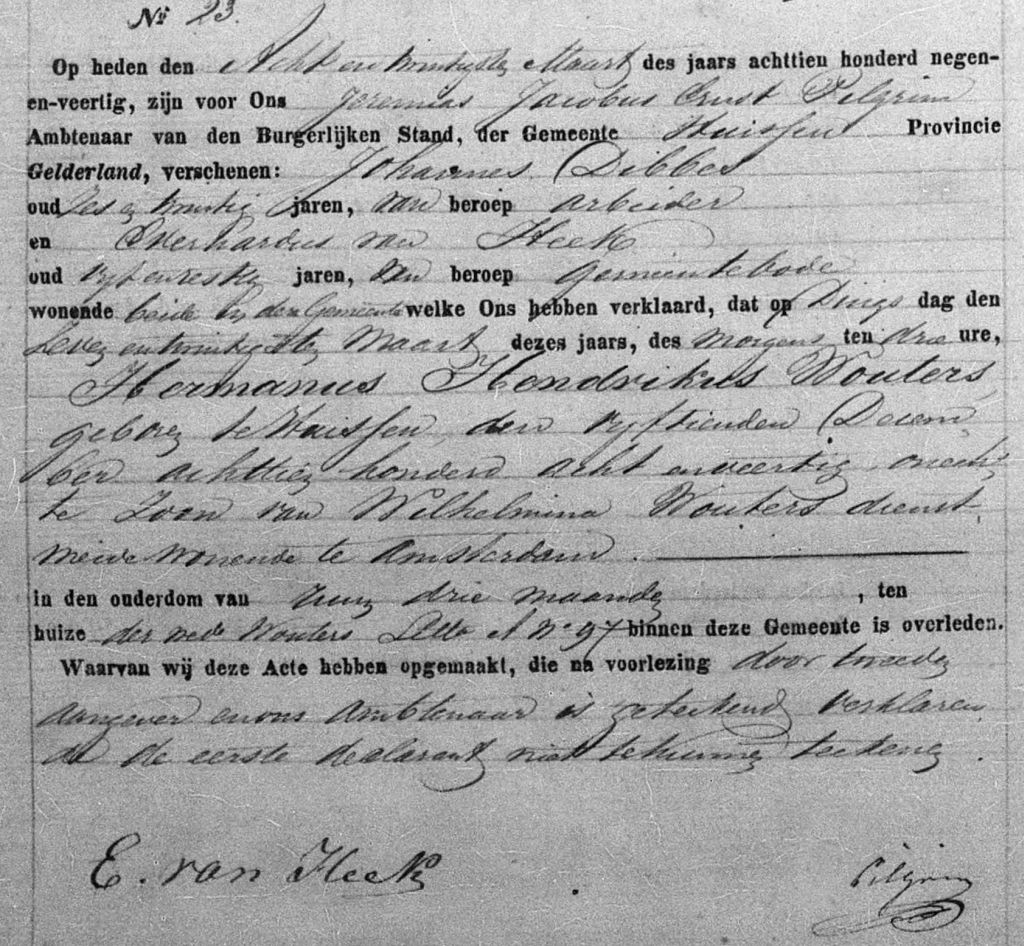 No 23.
Op heden den Acht en twintigsten Maart des jaars achttien honderd negen-
en-veertig, zijn voor Ons Jeremias Jacobus Ernst Pilgrim
Ambtenaar van den Burgerlijken Stand, der Gemeente Huissen Provincie
Gelderland, verschenen: Johannes Dibbes
oud Zes en twintig jaren, van beroep arbeider
en Everhardus van Heek
oud vyf en zestig jaren, van beroep gemeentebode
wonende beide in deze Gemeente welke Ons hebben verklaard, dat op Dings dag den
Zeven en twintigsten Maart dezes jaars, des morgens ten drie ure,
Hermanus Hendrikus Wouters,
geboren te Huissen, den vyftienden Decem
ber achttien honderd acht en veertig, onech
te Zoon van Wilhelmina Wouters dienst
meid wonende te Amsterdam.
in den ouderdom van ruim drie maanden, ten
huize der Wouters A No 97 binnen deze Gemeente is overleden.
Waarvan wij deze Acte hebben opgemaakt, die na voorlezing door tweeden
aangever en ons Ambtenaar is geteekend verklaren
de de eerste declarant niet te kunnen teekenen.
E. van Heek
Pilgrim